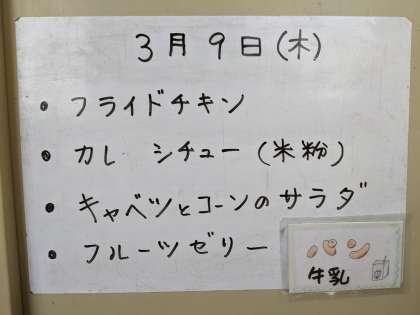 3月9日(木)
・フライドチキン
・カレーシチュー(米粉)
・キャベツとコーンのサラダ
・フルーツゼリー
パン
牛乳